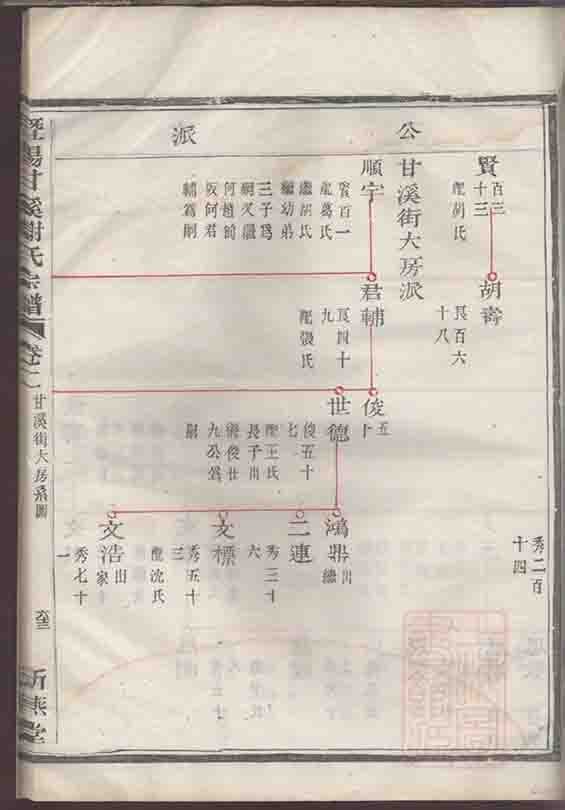 公
派
賢
百三
十三
配胡氏
胡壽
艮百六
十八
秀二百
十四
甘溪街大房派
順宇
賢百一
配葛氏
繼胡氏
繼幼弟
三子爲
嗣又繼
何君
輔爲嗣
君輔
艮四十
九
配張氏
俊
五
十
世德
俊五十
七
配王氏
長子出
九公爲
嗣
鴻鼎
出
繼
二連
秀三十
六
文標
秀五十
三
配沈氏
文浩
出
家
秀七十
一
甘溪謝氏宗譜
卷二
甘溪街大房系圖